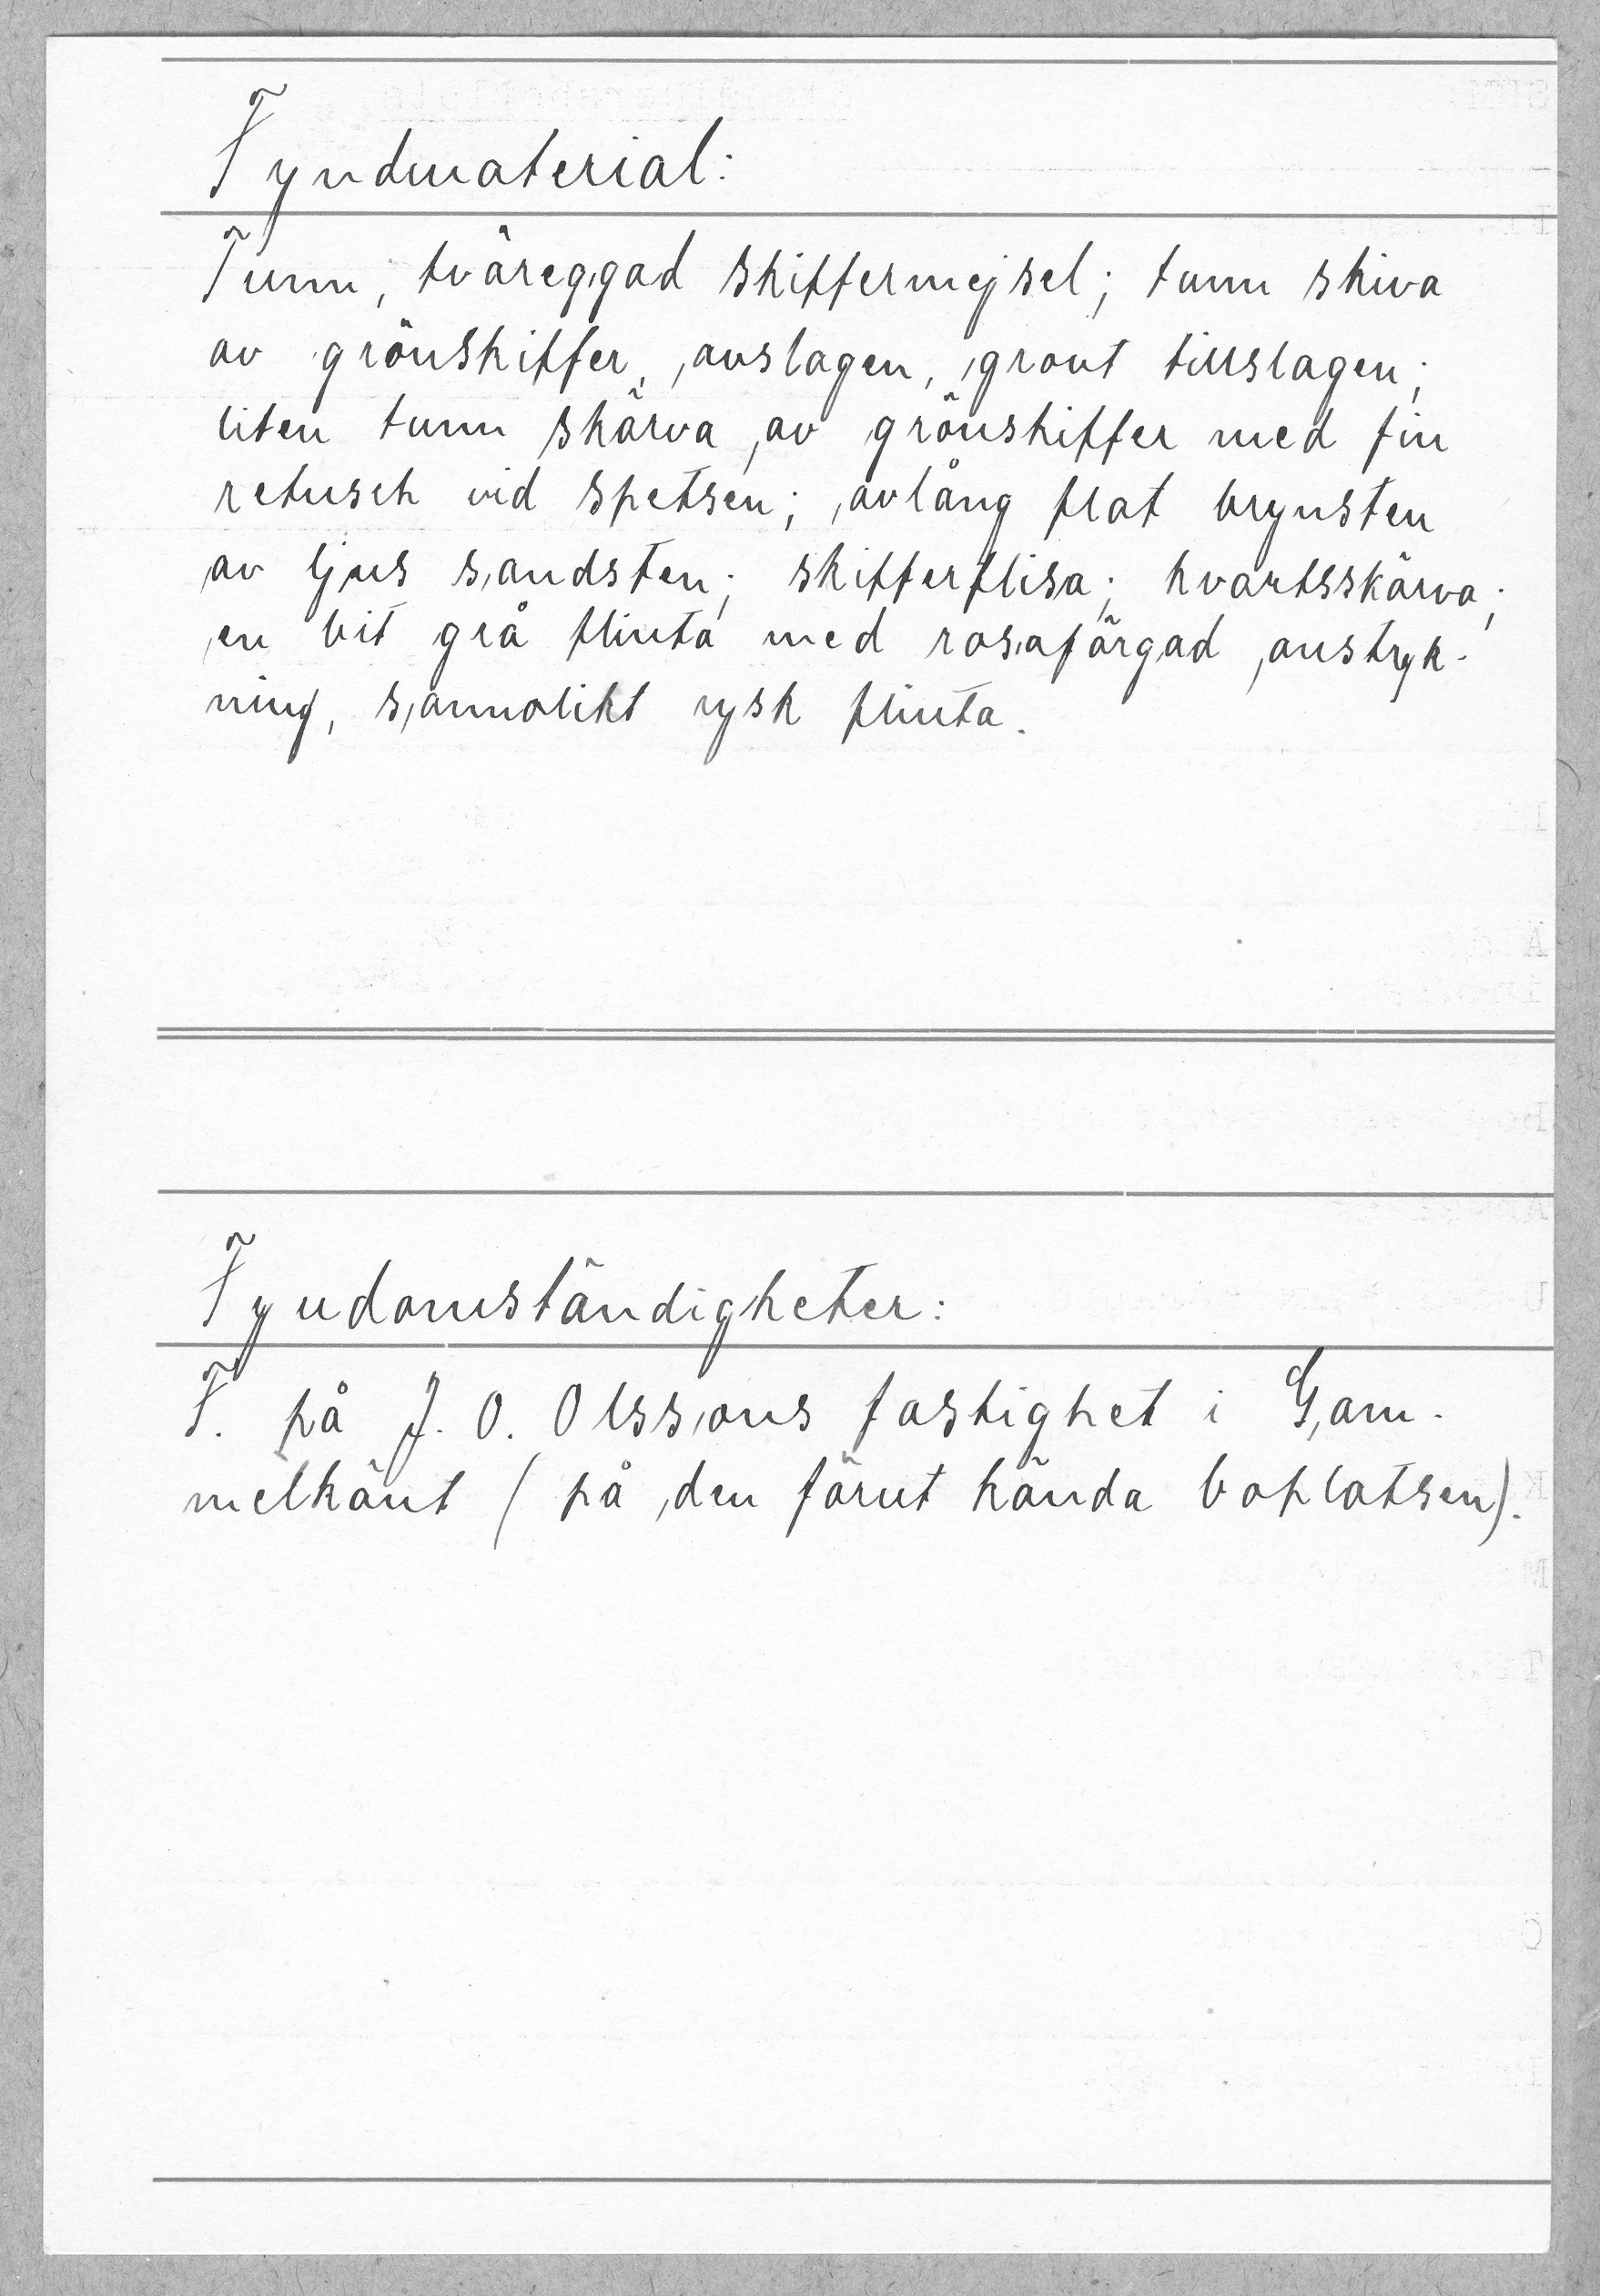 Fyndmaterial:
Tunn, tväreggad skiffermejsel; tunn skiva
av grönskiffer, avslagen, grovt tillslagen;
liten tunn skärva av grönskiffer med fin
retusch vid spetsen; avlång flat brynsten
av ljus sandsten; skifferflisa; kvartsskärva;
en bit grå flinta med rosafärgad anstryk-
ning, sannolikt rysk flinta.
Fyndomständigheter:
F. på J. O. Olssons fastighet i Gam-
melkänt (på den förut kända boplatsen).